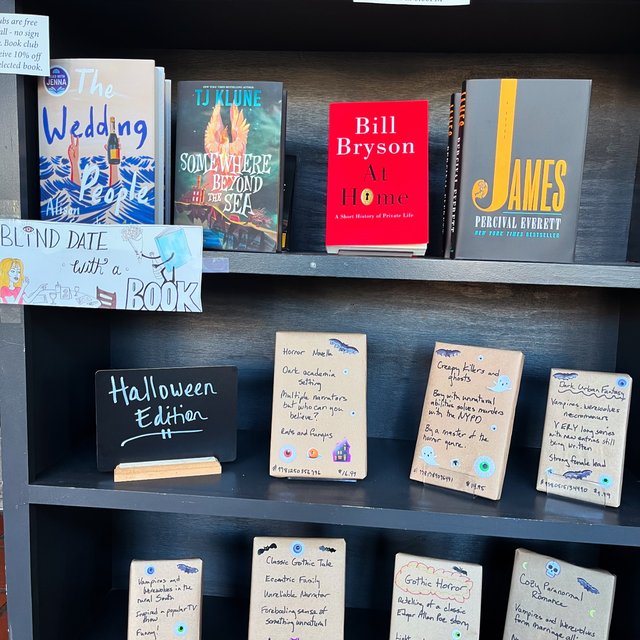 ubs are free
all - no sign
. Book club
eive 10% off
selected book,
JENNA
The
Wedding
People
Alison
TJ KLUNE
SOMEWHERE
BEYOND
THE
SEA
Bill
Bryson
At
Home
A Short History of Private Life
JAMES
PERCIVAL EVERETT
NEW YORK TIMES BESTSELLER
BLIND DATE
with a
BOOK
Halloween
Edition
Horror Novella
Dark academia
setting
Multiple narrators
but who can you
believe?
Rats and fungus
$16.99
Creepy Killers and
ghosts
Boy with unnatural
abilities solves murders
with the NYPD
By a master of the
horror genre.
$19.95
Dark Urban Fantasy
Vampires, werewolves
necromancers
VERY long series
with new entries still
being written
Strong female lead
Vampires and
werewolves in the
rural South
Inspired a popular TV
show
Funny
Classic Gothic Tale
Eccentric Family
Unreliable Narrator
Foreboding sense of
something unnatural
Gothic Horror
Retelling of a classic
Edgar Allan Poe story
Cozy Paranormal
Romance
Vampires and Werewolves
form marriage